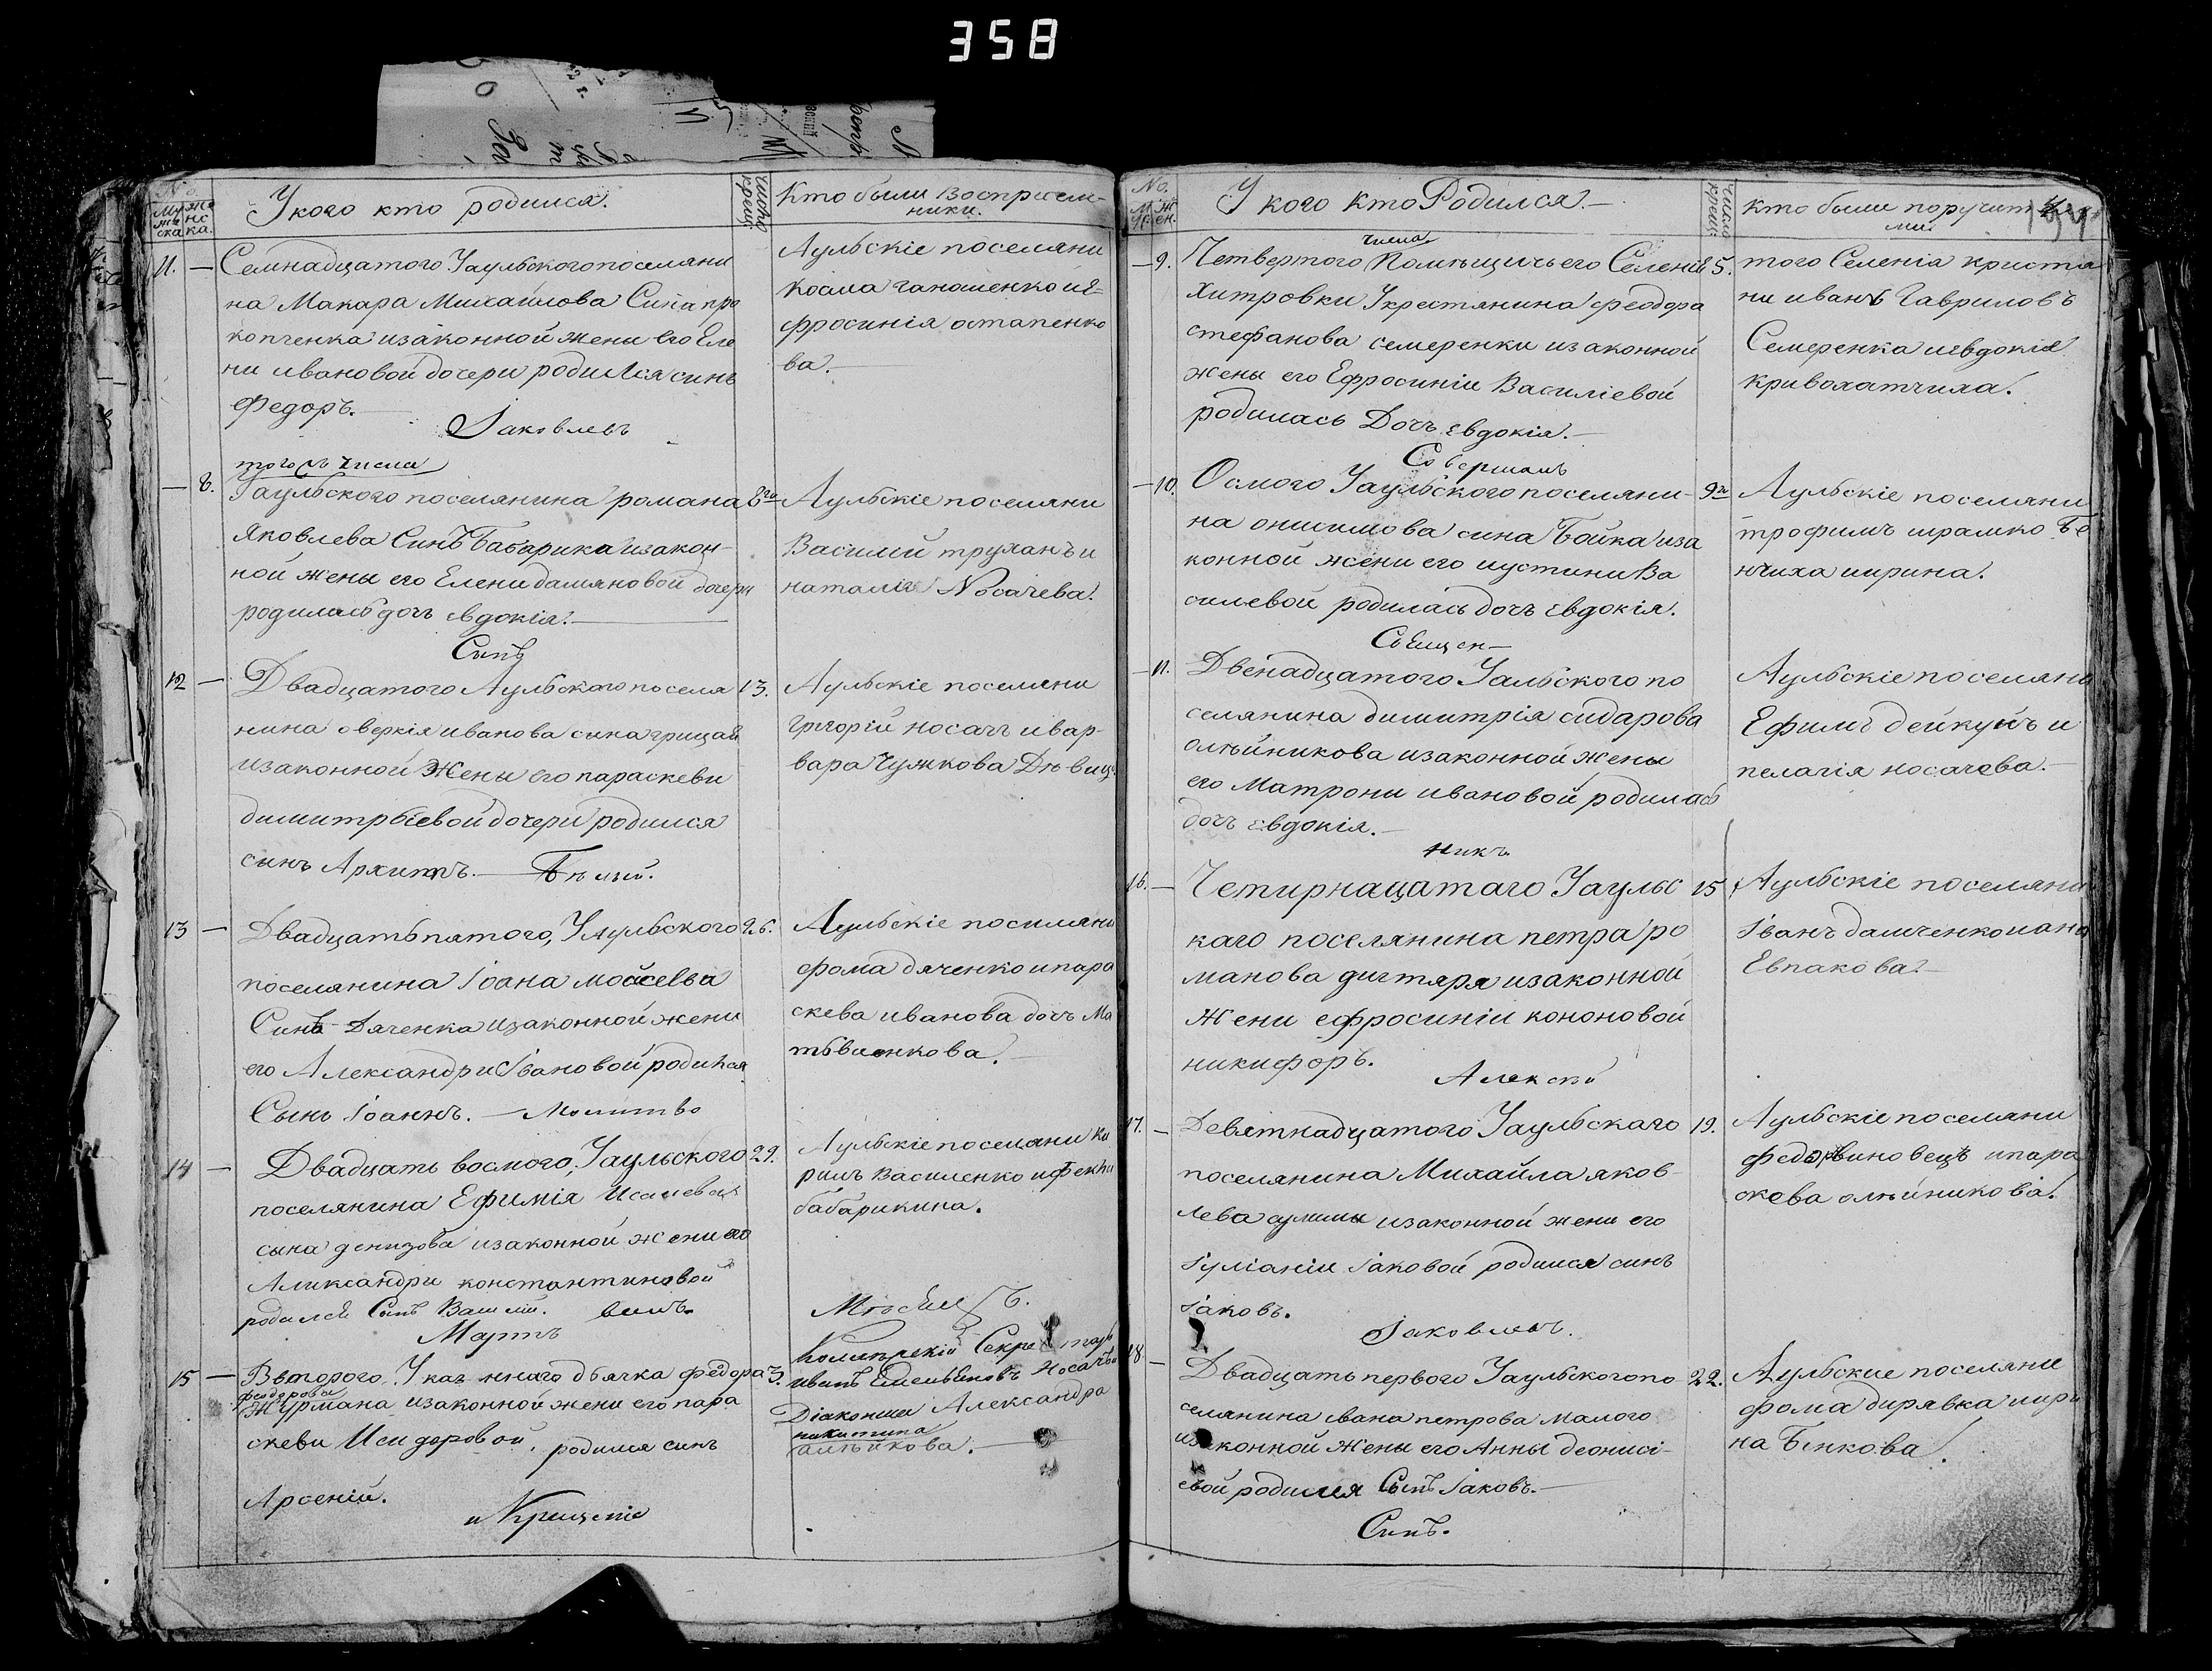 358
No.
Мужеска
женска.
У кого кто родился.
число крещ:
Кто были Восприем-
ники.
11. —
Семнадцатого У аульского поселяни
на Макара Михайлова Сина про
копченка изаконной жены его Еле
ни ивановой дочери родился синъ
Федоръ.—
Iаковлевъ
Аульскiе поселяни
Косма ганошенко и Е-
фросинiя остапенко
ва.—
того съ числа
— 8.
У аульского поселянина романа
Яковлева Синъ Бабарика изакон-
ной жены его Елени дамяновой дочери
родилась дочь евдокiя.—
Синъ
8го
Аульскiе поселяни
Василий труханъ и
наталiя Носачева.
12 —
Двадцатого Аульского поселя
нина оверкiя иванова сына грицай
изаконной Жены его параскеви
димитрьевой дочери родился
синъ Архипъ.— Бѣлый.
13.
Аульскiе поселяни
григорiй носачъ и вар-
вара Чумкова Дѣвиц:
13 —
Двадцать пятого, У аульского
поселянина Iоана мойсеева
Синъ Дяченка изаконной жени
его Александри Iвановой родился
Сынъ Iоаннъ.— Молитво
26.
Аульскiе посиляни
фома дяченко и пара
скева иванова дочь Ма
твѣенкова.—
14 —
Двадцать восмого, У аульского
поселянина Ефимiя Исаиева
сына денизова изаконной жени его
Аликсандри константиновой
родился Синъ Василий.
29.
Аульскiе поселяни ки
рилъ Василенко и фекла
бабарикина.
Мартъ
Мѣсяцъ.
15 —
Второго У каз ннаго дьячка федора
феодорова
Журмана изаконной жени его пара
скеви Исидоровой, родился синъ
Арсенiй.
и Крещенiе
3.
Колежскiй Секретарь
иванъ Емельяновъ Носачъ и
Дiаконша Александра
никитина
алѣйкова.—
No.
Муж.
Жен.
У кого кто Родился.—
число крещ:
кто были поручител
ми.
числа
— 9.
Четвертого Помѣщичьего Селенiя
Хитровки У крестянина феодора
стефанова семеренки изаконной
жены его Ефросинiи Василiевой
родилась Дочъ евдокiя.—
Совершалъ
5.
того Селенiя кристя
ни иванъ Гавриловъ
Семеренка и евдокiя
кривохатчиха.
— 10.
Осмого У аульского поселяни-
на онисимова сина Бойка иза
конной жени его иустини Ва
силевой родилась дочъ евдокiя.
Священ—
9го
Аульскiе поселяни
трофимъ шрамко Бо
нчиха ирина.
— 11.
Двенадцатого У альского по
селянина димитрiя сидарова
олѣйникова изаконной жены
его Матрони ивановой родилась
дочъ евдокiя.—
никъ
Аульскiе поселяни
Ефимъ дейкунъ и
пелагiя носачова.—
16. —
Четирнацатаго У аульс
каго поселянина петра ро
манова дигтяря изаконной
Жени ефросинiи кононовой
никифоръ.
Алексiй
15
Аульскiе поселяни
Iванъ дамченко и ана
Евпакова.—
17. —
Девятнадцатого У аульскаго
поселянина Михайла яков-
лева сулимы изаконной жени его
Iулiанiи Iаковой родился синъ
Iаковъ.
Iаковлевъ.
19.
Аульскiе поселяни
федоръ виновецъ и пара
скева олѣйникова.
18 —
Двадцать первого У аульского по
селянина ивана петрова малого
изаконной Жены его Анны деонисi-
евой родился Синъ Iаковъ.—
Синъ.
22.
Аульские поселяни
фома дирявка и ири
на Бѣнкова.